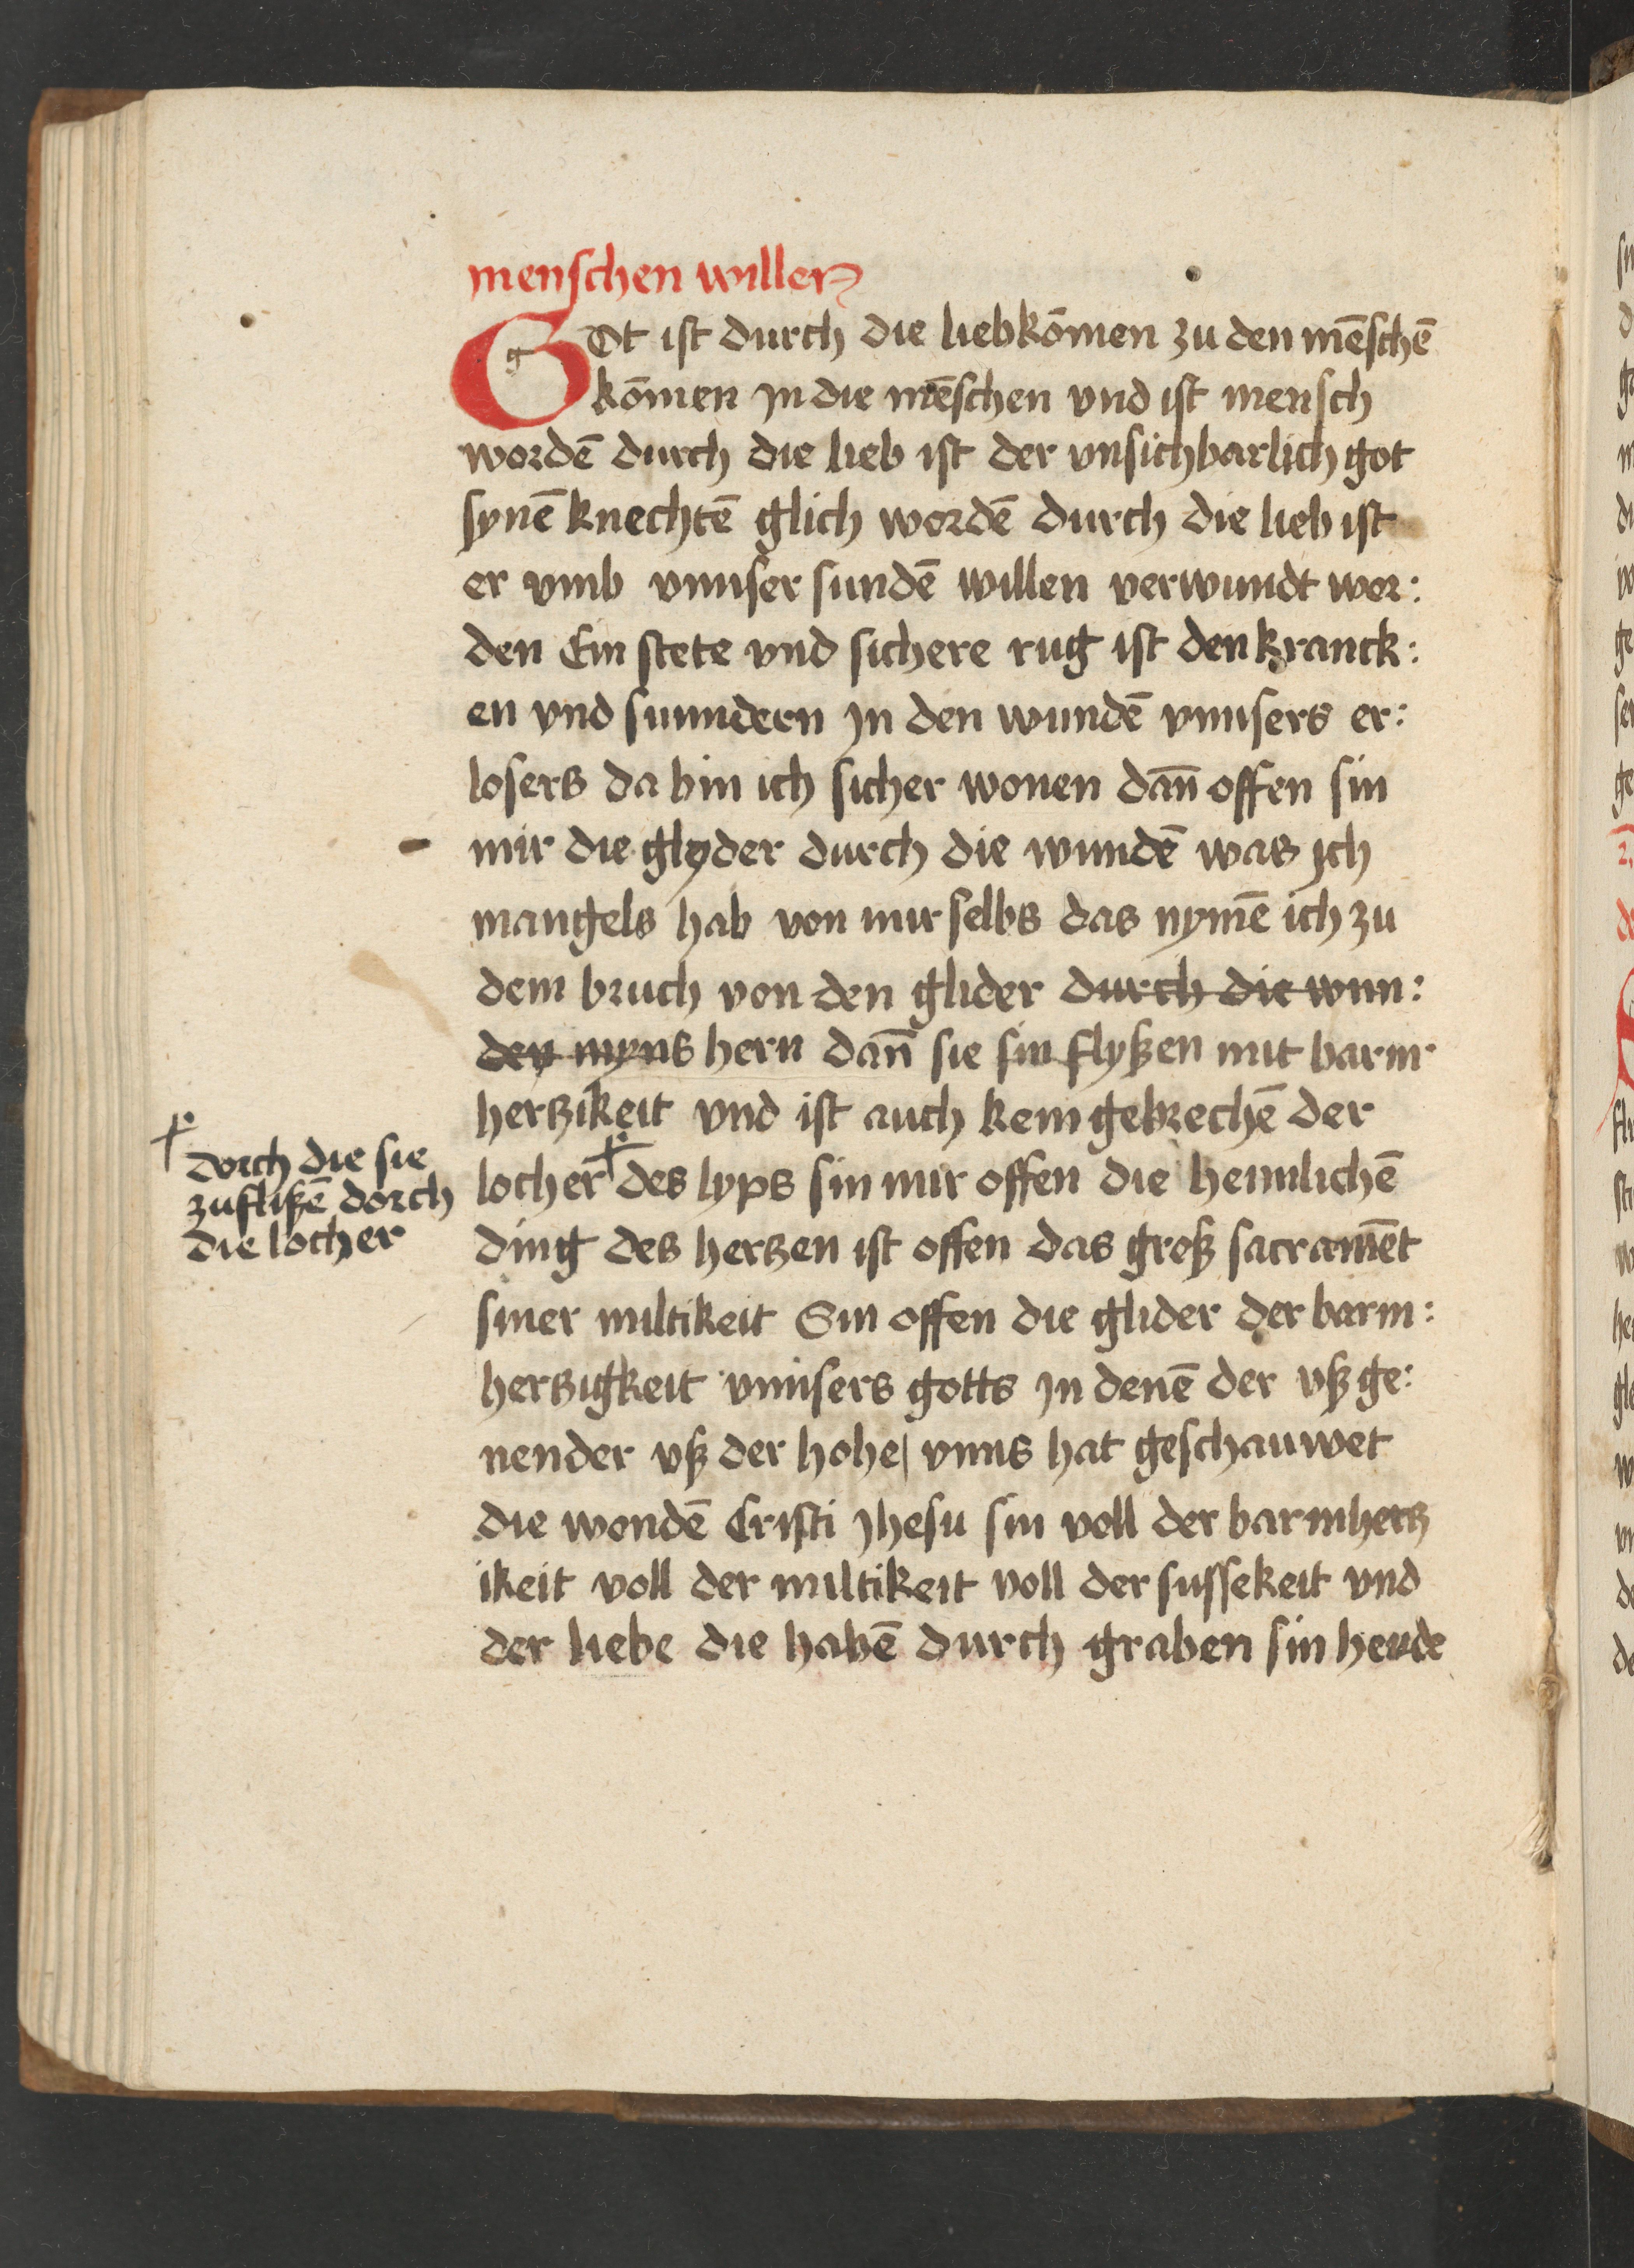 menschen willen
GOt ist durch die lieb kōmen zu den mēschē
kōmen jn die mēschen vnd ist mensch
wordē durch die lieb ist der vnsichbarlich got
synē knechtē glich wordē durch die lieb ist
er vmb vnnser sundē willen verwundt wor:
den Ein stete vnd sichere rug ist den kranck:
en vnd sunndern jn den wundē vnnsers er:
losers da bin ich sicher wonen dan̄ offen sin
mir die glyder durch die wundē was jch
mangels hab von mir selbs das nymē ich zu
dem bruch von den glider durch die wun:
den myns hern dan̄ sie sin flyßen mit barm
hertzikeit vnd ist auch kein gebrechē der
locher des lyps sin mir offen die heimlichē
ding des hertzen ist offen das groß sacramēt
siner miltikeit Sin offen die glider der barm:
hertzigkeit vnnsers gotts jn denē der vßge:
nender vß der hohe vnns hat geschauwet
die wondē Cristi jhesu sin voll der barmhertz
ikeit voll der miltikeit voll der sussekeit vnd
der liebe die habē durch graben sin hende
dorch die sie
zuflißē dorch
die locher